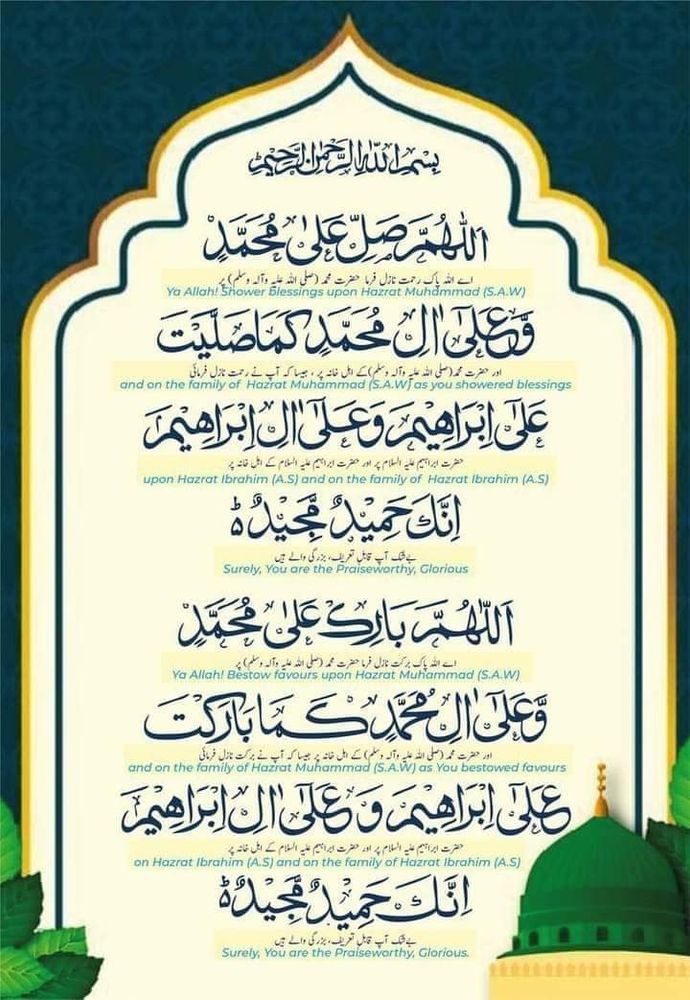 بِسْمِ اللهِ الرَّحْمٰنِ الرَّحِيْمِ
اَللّٰهُمَّ صَلِّ عَلٰى مُحَمَّدٍ
اے اللہ پاک رحمت نازل فرما حضرت محمد (صلی اللہ علیہ وآلہ وسلم) پر
Ya Allah! Shower blessings upon Hazrat Muhammad (S.A.W)
وَّعَلٰٓى اٰلِ مُحَمَّدٍ كَمَا صَلَّيْتَ
اور حضرت محمد (صلی اللہ علیہ وآلہ وسلم) کے اہل خانہ پر ، جیسا کہ آپ نے رحمت نازل فرمائی
and on the family of Hazrat Muhammad (S.A.W) as you showered blessings
عَلٰٓى اِبْرَاهِيْمَ وَعَلٰٓى اٰلِ اِبْرَاهِيْمَ
حضرت ابراہیم علیہ السلام پر اور حضرت ابراہیم علیہ السلام کے اہل خانہ پر
upon Hazrat Ibrahim (A.S) and on the family of Hazrat Ibrahim (A.S)
اِنَّكَ حَمِيْدٌ مَّجِيْدٌ ؕ
بےشک آپ قابل تعریف، بزرگی والے ہیں
Surely, You are the Praiseworthy, Glorious
اَللّٰهُمَّ بَارِكْ عَلٰى مُحَمَّدٍ
اے اللہ پاک برکت نازل فرما حضرت محمد (صلی اللہ علیہ وآلہ وسلم) پر
Ya Allah! Bestow favours upon Hazrat Muhammad (S.A.W)
وَّعَلٰٓى اٰلِ مُحَمَّدٍ كَمَا بَارَكْتَ
اور حضرت محمد (صلی اللہ علیہ وآلہ وسلم) کے اہل خانہ پر جیسا کہ آپ نے برکت نازل فرمائی
and on the family of Hazrat Muhammad (S.A.W) as You bestowed favours
عَلٰٓى اِبْرَاهِيْمَ وَ عَلٰٓى اٰلِ اِبْرَاهِيْمَ
حضرت ابراہیم علیہ السلام پر اور حضرت ابراہیم علیہ السلام کے اہل خانہ پر
on Hazrat Ibrahim (A.S) and on the family of Hazrat Ibrahim (A.S)
اِنَّكَ حَمِيْدٌ مَّجِيْدٌ ؕ
بےشک آپ قابل تعریف، بزرگی والے ہیں
Surely, You are the Praiseworthy, Glorious.